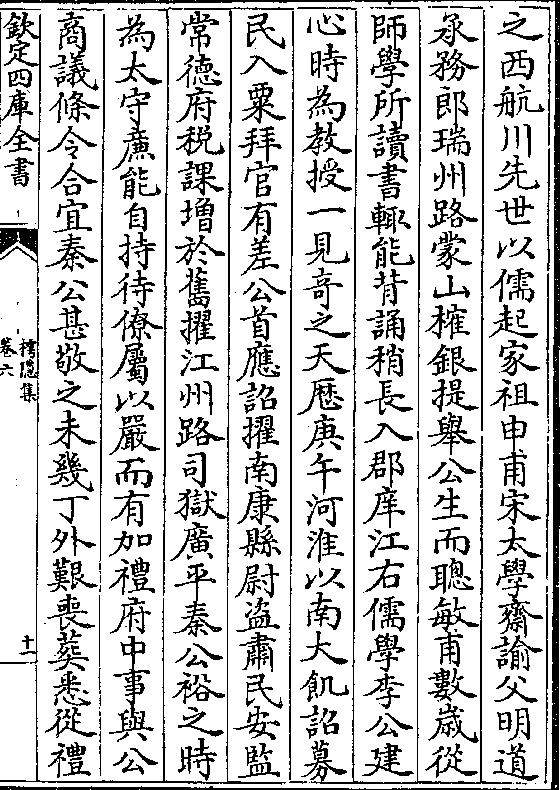 之西航川先世以儒起家祖申甫宋太學齋諭父明道
承務郎瑞州路蒙山榷銀提舉公生而聰敏甫數歳從
師學所讀書輒能背誦稍長入郡庠江右儒學李公建
心時為教授一見竒之天厯庚午河淮以南大飢詔募
民入粟拜官有差公首應詔擢南康縣尉盗肅民安監
常徳府税課增於舊擢江州路司獄廣平秦公裕之時
為太守亷能自持待僚屬以嚴而有加禮府中事與公
商議條令合宜秦公甚敬之未幾丁外艱喪葬悉從禮
欽定四庫全書
樗隱集
卷六
十一